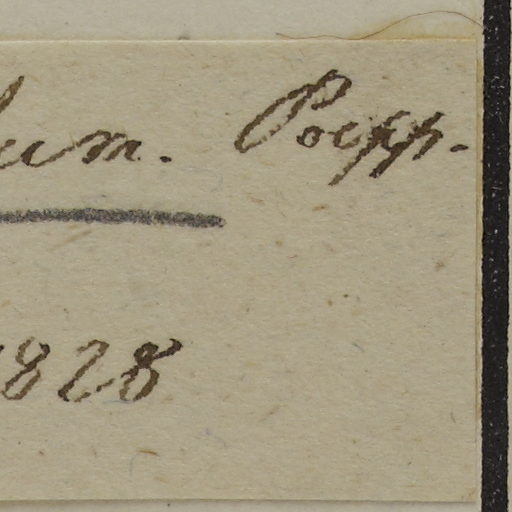 um. Poepp.
1828